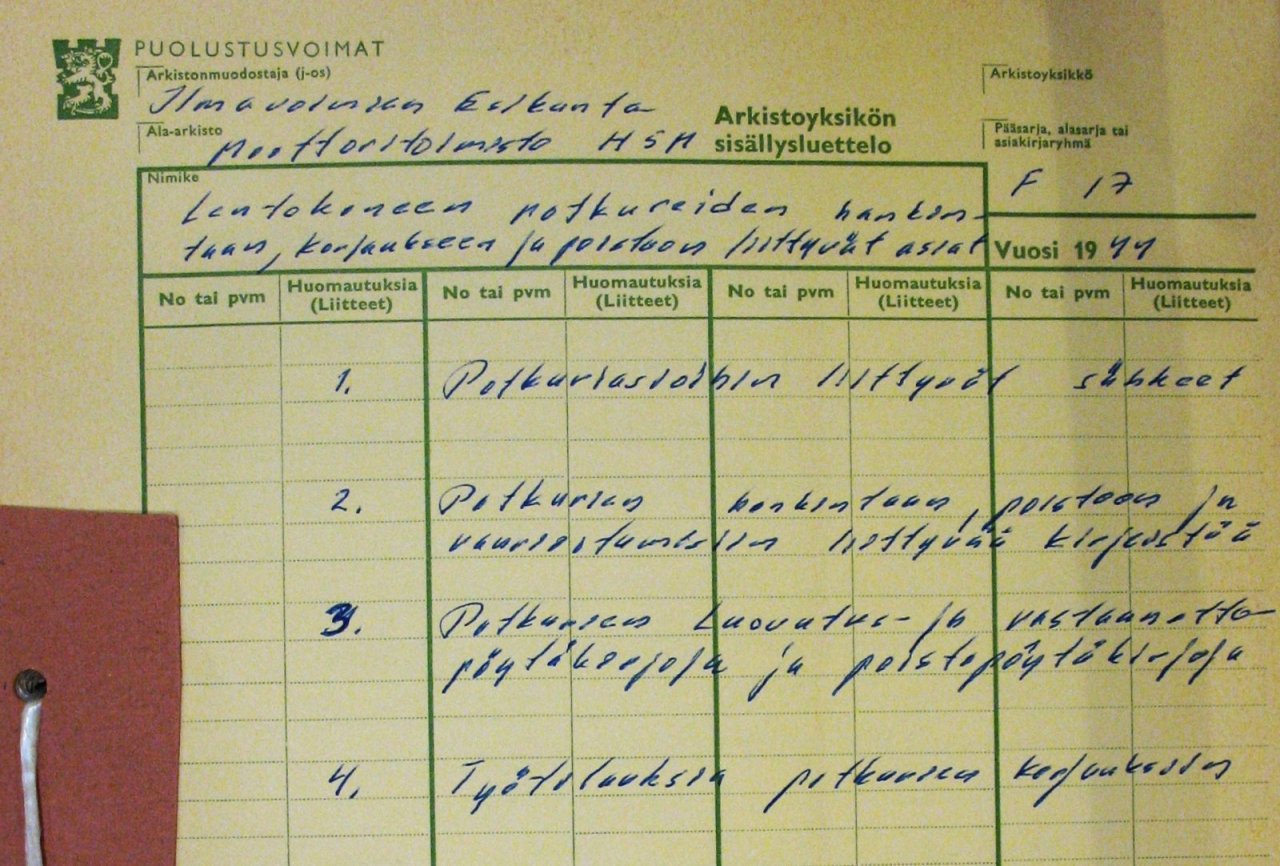 PUOLUSTUSVOIMAT
Arkistonmuodostaja (j-os)
Ilmavoimien Esikunta
Ala-arkisto
Moottoritoimisto HSM
Arkistoyksikön
sisällysluettelo
Arkistoyksikkö
Pääsarja, alasarja tai
asiakirjaryhmä
F 17
Nimike
Lentokoneen potkureiden hankin-
taan, korjaukseen ja poistoon liittyvät asiat
Vuosi 1944
No tai pvm Huomautuksia (Liitteet) No tai pvm Huomautuksia (Liitteet) No tai pvm Huomautuksia (Liitteet) No tai pvm Huomautuksia (Liitteet)
1. Potkuriasioihin liittyvät sähkeet
2. Potkurien hankintaan, poistoon ja
vaurioitumisiin liittyvää kirjeistää
3. Potkurien Luovutus- ja vastaanotto-
pöytäkirjoja ja poistopöytäkirjoja
4. Työtilauksia potkurien korjauksiin